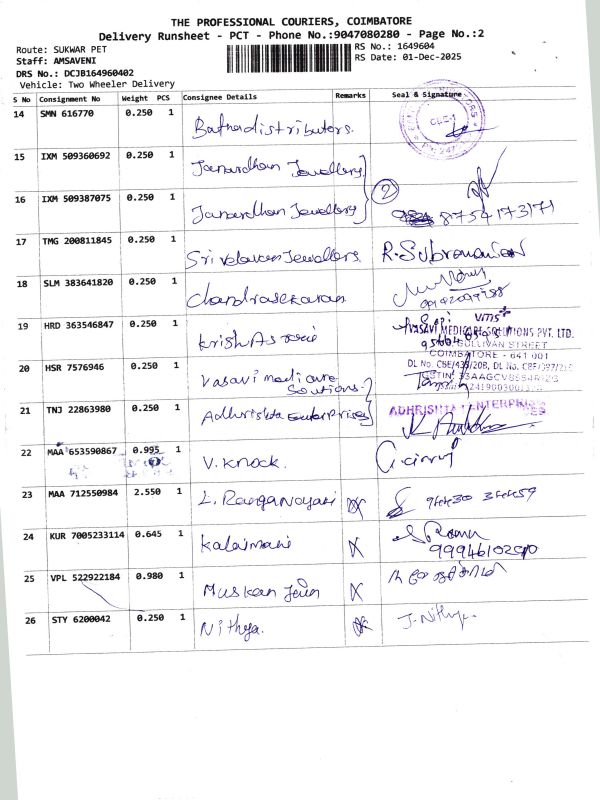 THE PROFESSIONAL COURIERS, COIMBATORE
Delivery Runsheet - PCT - Phone No.:9047080280 - Page No.:2
Route: SUKWAR PET
RS No.: 1649604
Staff: AMSAVENI
RS Date: 01-Dec-2025
DRS No.: DCJB164960402
Vehicle: Two Wheeler Delivery
S No Consignment No Weight PCS Consignee Details Remarks Seal & Signature
14 SMN 616770 0.250 1 distributors.
15 IXM 509360692 0.250 1 Janardhan Jewellery
16 IXM 509387075 0.250 1 Janardhan Jewellery 2 8754173171
17 TMG 200811845 0.250 1 Sri Velavan Jewellers R. Subramanian
18 SLM 383641820 0.250 1 Chandrasekaran
19 HRD 363546847 0.250 1 Krish
VASAVI MEDICARE SOLUTIONS PVT. LTD.
SULLIVAN STREET
COIMBATORE - 641 001
20 HSR 7576946 0.250 1 Vasavi medicare Solutions
21 TNJ 22863980 0.250 1 Adhrishta Enterprises ADHRISHTA ENTERPRISES
22 MAA 653590867 0.995 1 V. Knock.
23 MAA 712550984 2.550 1 L. Ranganayaki
24 KUR 7005233114 0.645 1 Kalaimani X
25 VPL 522922184 0.980 1 Muskan Jain X
26 STY 6200042 0.250 1 Nithya. J. Nithya